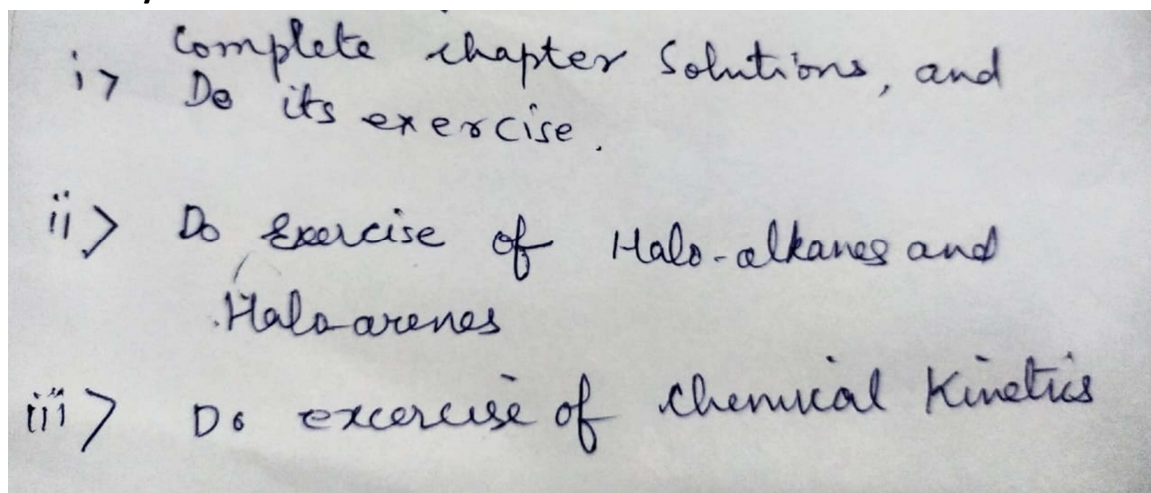 Complete chapter Solutions, and
i> Do its exercise.
ii> Do Exercise of Halo-alkanes and
Halo-arenes
iii> Do excercise of Chemical Kinetics